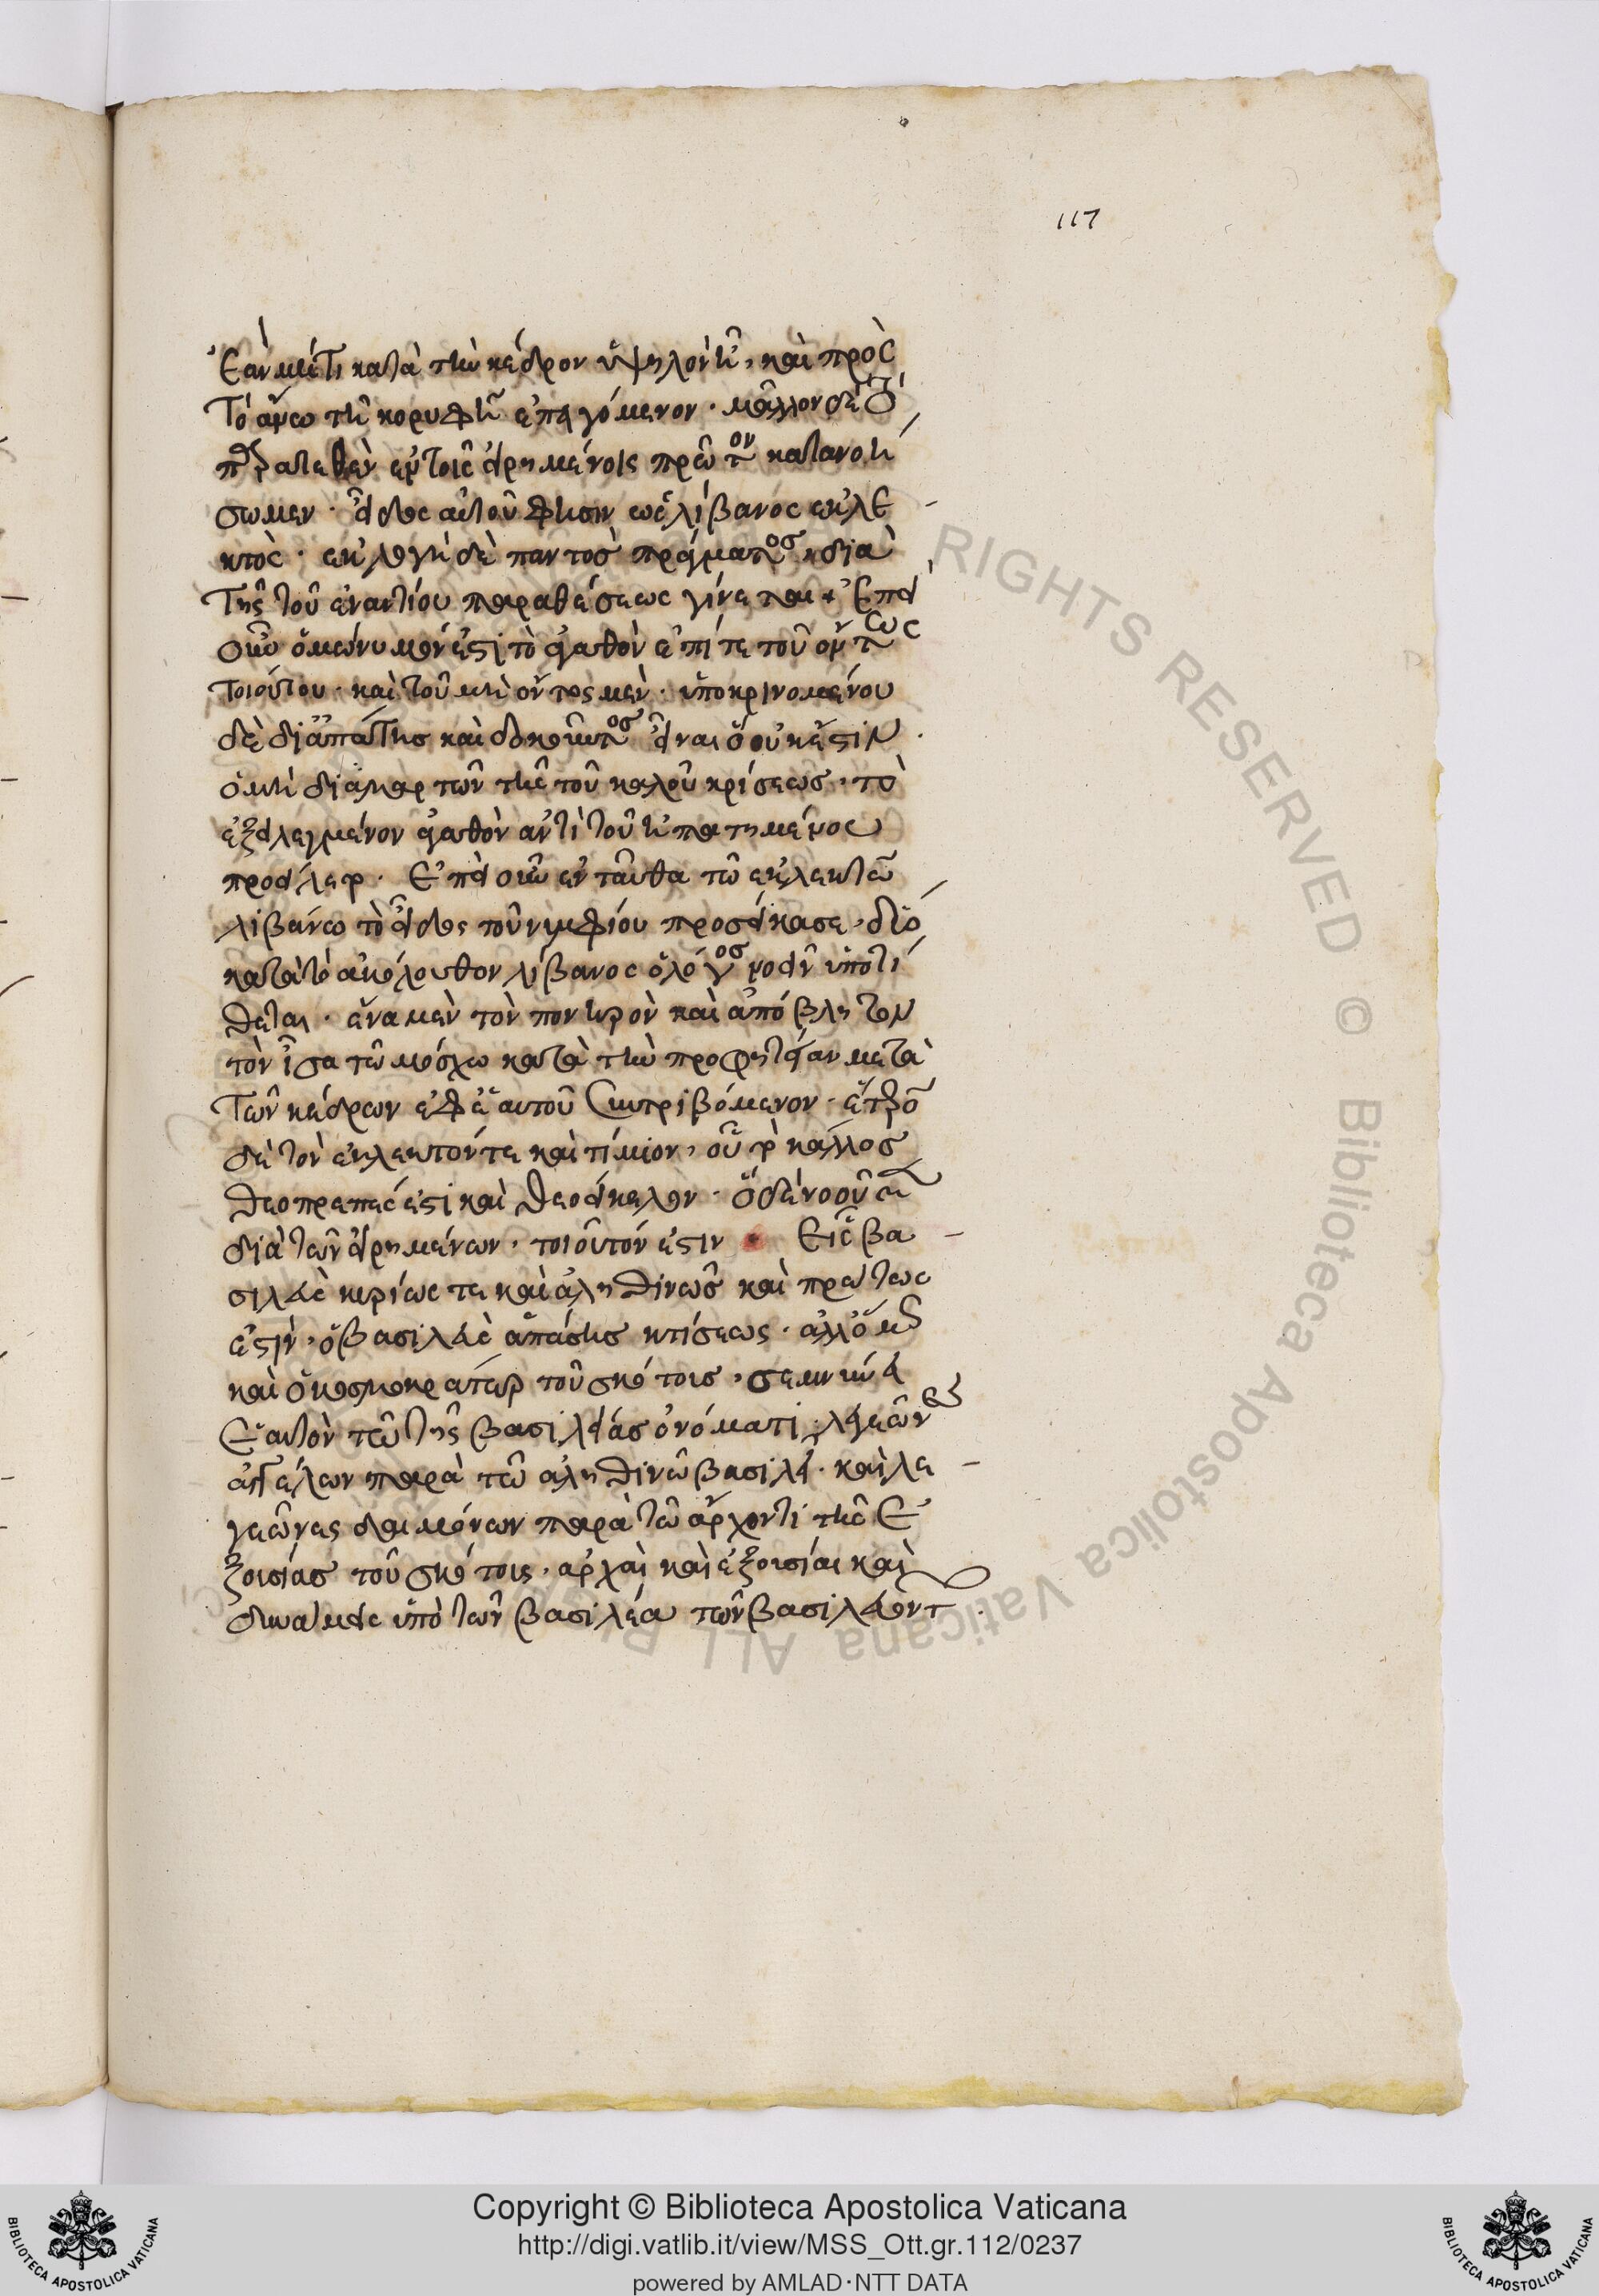 117
Ἐὰν μήτι κατὰ τὴν κέδρον ὑψηλὸν ᾖ, καὶ πρὸς
τὸ ἄνω τῇ κορυφῇ ἐπειγόμενον. μᾶλλον δὲ τὸ
παρατεθὲν ἐν τοῖς εἰρημένοις πρῶτον κατανοή
σωμεν. εἶδος αὐτοῦ φησιν ὡς λίβανος ἐκλε
κτὸς. ἐκλογὴ δὲ παντὸς πράγματος διὰ
τῆς τοῦ ἐναντίου παραθέσεως γίνεται. Ἐπεὶ
οὖν ὁμώνυμόν ἐστι τὸ ἀγαθὸν ἐπί τε τοῦ ὄντως
τοιούτου. καὶ τοῦ μὴ ὄντος μὲν. ὑποκρινομένου
δὲ δι' ἀπάτης καὶ δοκοῦντος εἶναι ὃ οὐκ ἔστιν.
ὁ μὴ διαμαρτὼν τῆς τοῦ καλοῦ κρίσεως, τὸ
ἐξειλεγμένον ἀγαθὸν ἀντὶ τοῦ ἠπατημένως
προείλετο. Ἐπεὶ οὖν ἐνταῦθα τῷ ἐκλεκτῷ
λιβάνῳ τὸ εἶδος τοῦ νυμφίου προσείκασε, διὸ
κατὰ τὸ ἀκόλουθον λίβανος ὁ λόγος νοεῖν ὑποτί
θεται. ἕνα μὲν τὸν πονηρὸν καὶ ἀπόβλητον
τὸν ἴσα τῷ μόσχῳ κατὰ τὴν προφητείαν μετὰ
τῶν κέδρων ἐφ' ἑαυτοῦ συντριβόμενον. ἕτερον
δὲ τὸν ἐκλεκτόν τε καὶ τίμιον, οὗ τὸ κάλλος
θεοπρεπές ἐστι καὶ θεοείκελον. ὃ δὲ νοοῦμεν
διὰ τῶν εἰρημένων, τοιοῦτόν ἐστιν. Εἷς βα
σιλεὺς κυρίως τε καὶ ἀληθινῶς καὶ πρώτως
ἐστὶν, ὁ βασιλεὺς ἁπάσης κτίσεως. ἀλλ' ὅμως
καὶ ὁ κοσμοκράτωρ τοῦ σκότους, σεμνύνει
ἑαυτὸν τῷ τῆς βασιλείας ὀνόματι. λεγεῶνες
ἀγγέλων παρὰ τῷ ἀληθινῷ βασιλεῖ. καὶ λε
γεῶνες δαιμόνων παρὰ τῷ ἄρχοντι τῆς ἐ
ξουσίας τοῦ σκότους. ἀρχαὶ καὶ ἐξουσίαι καὶ
δυνάμεις ὑπὸ τῶν βασιλέα τῶν βασιλευόντ
RIGHTS RESERVED © Biblioteca Apostolica Vaticana ALL RI
Copyright © Biblioteca Apostolica Vaticana
http://digi.vatlib.it/view/MSS_Ott.gr.112/0237
powered by AMLAD·NTT DATA
BIBLIOTECA APOSTOLICA VATICANA
BIBLIOTECA APOSTOLICA VATICANA